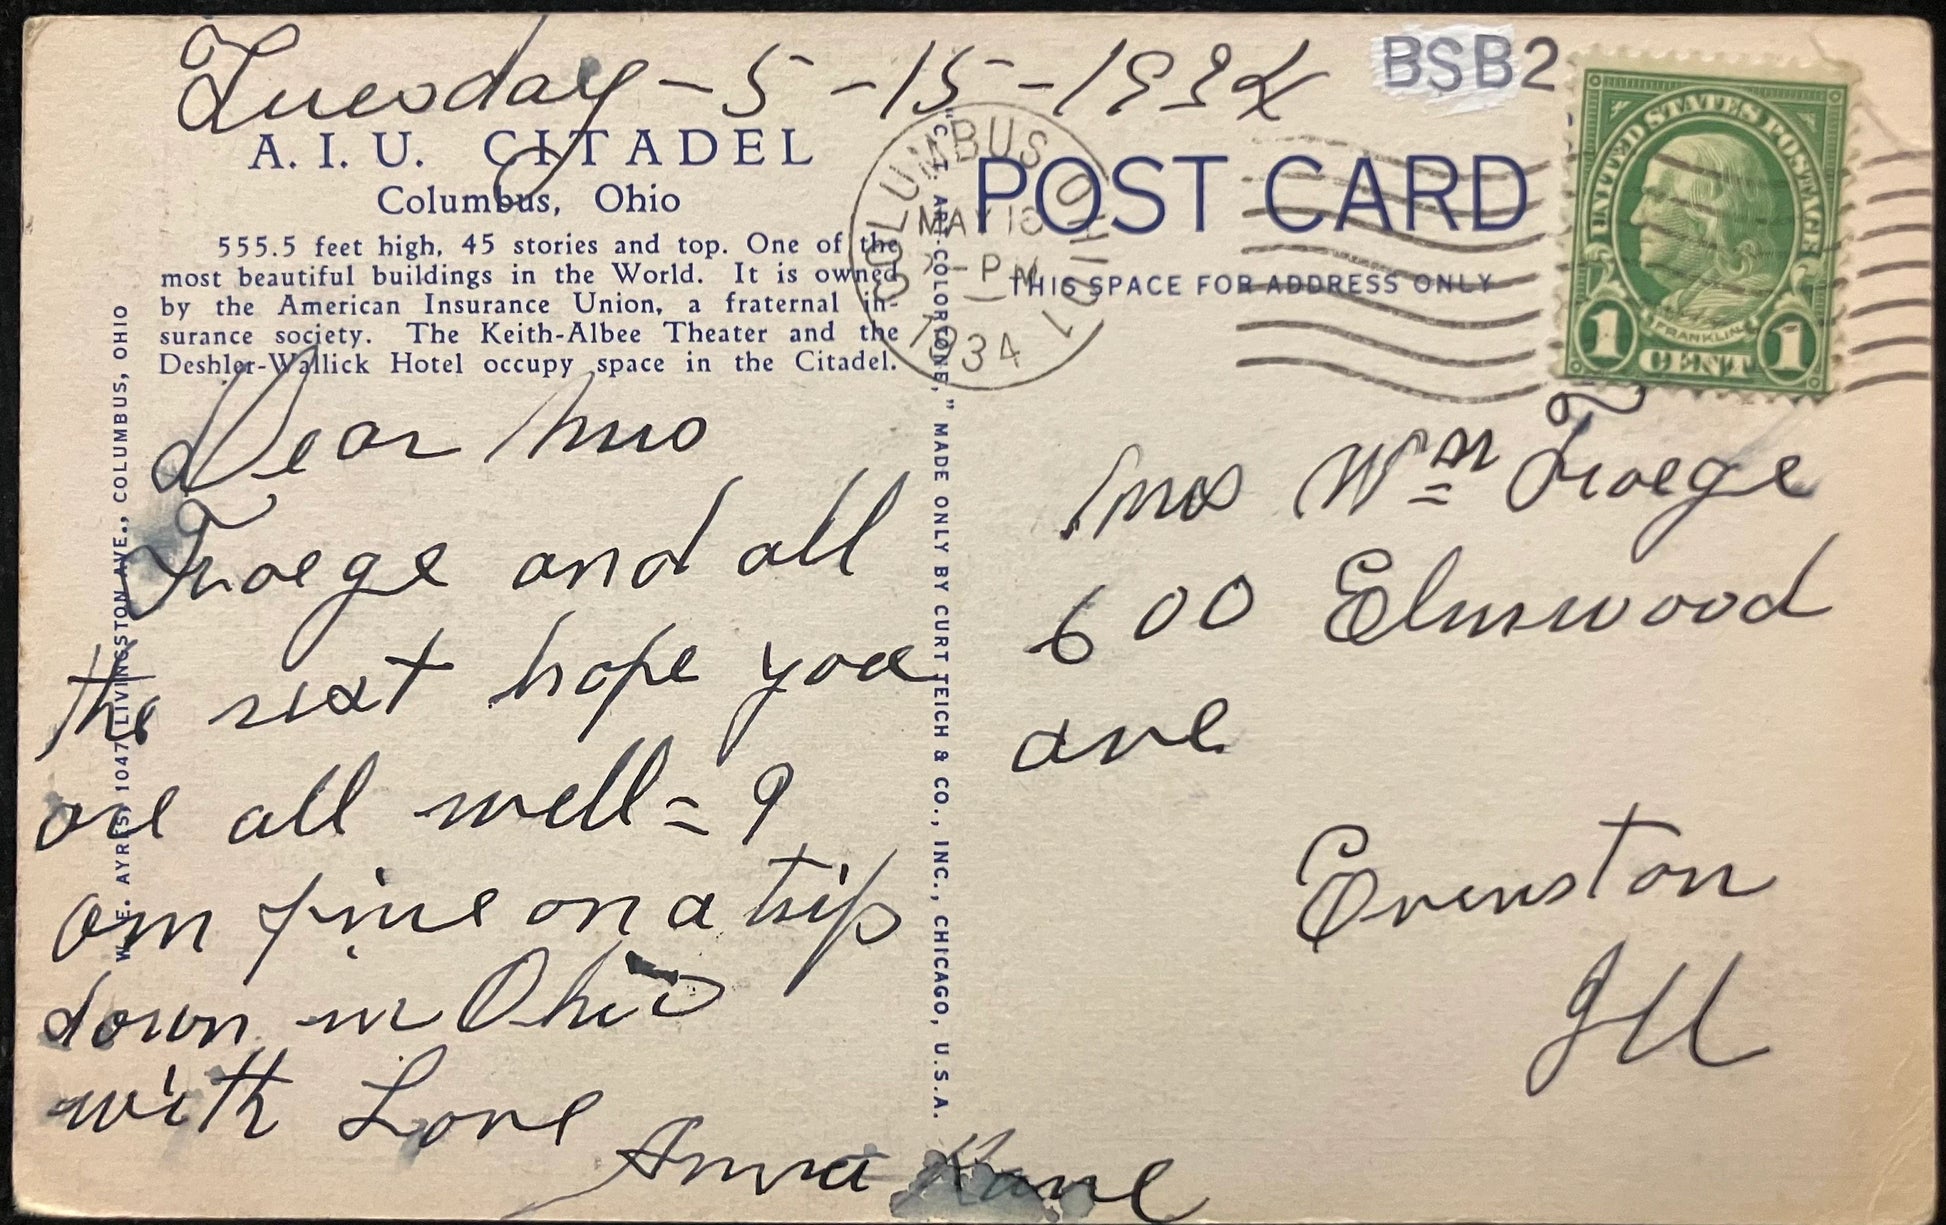 Tuesday - 5 - 15 - 1934
BSB2
A. I. U. CITADEL
Columbus, Ohio
555.5 feet high, 45 stories and top. One of the
most beautiful buildings in the World. It is owned
by the American Insurance Union, a fraternal in-
surance society. The Keith-Albee Theater and the
Deshler-Wallick Hotel occupy space in the Citadel.
W. E. AYRES, 1047 LIVINGSTON AVE., COLUMBUS, OHIO
"C. T. ART-COLORTONE," MADE ONLY BY CURT TEICH & CO., INC., CHICAGO, U.S.A.
COLUMBUS, OHIO 1
MAY 15
PM
1934
POST CARD
THIS SPACE FOR ADDRESS ONLY
UNITED STATES POSTAGE
FRANKLIN
1 CENT 1
Dear Mrs
Froege and all
the rest hope you
are all well = I
am fine on a trip
down in Ohio
with Love
Anna Kane
Mrs Wm Froege
600 Elmwood
ave
Evenston
Ill